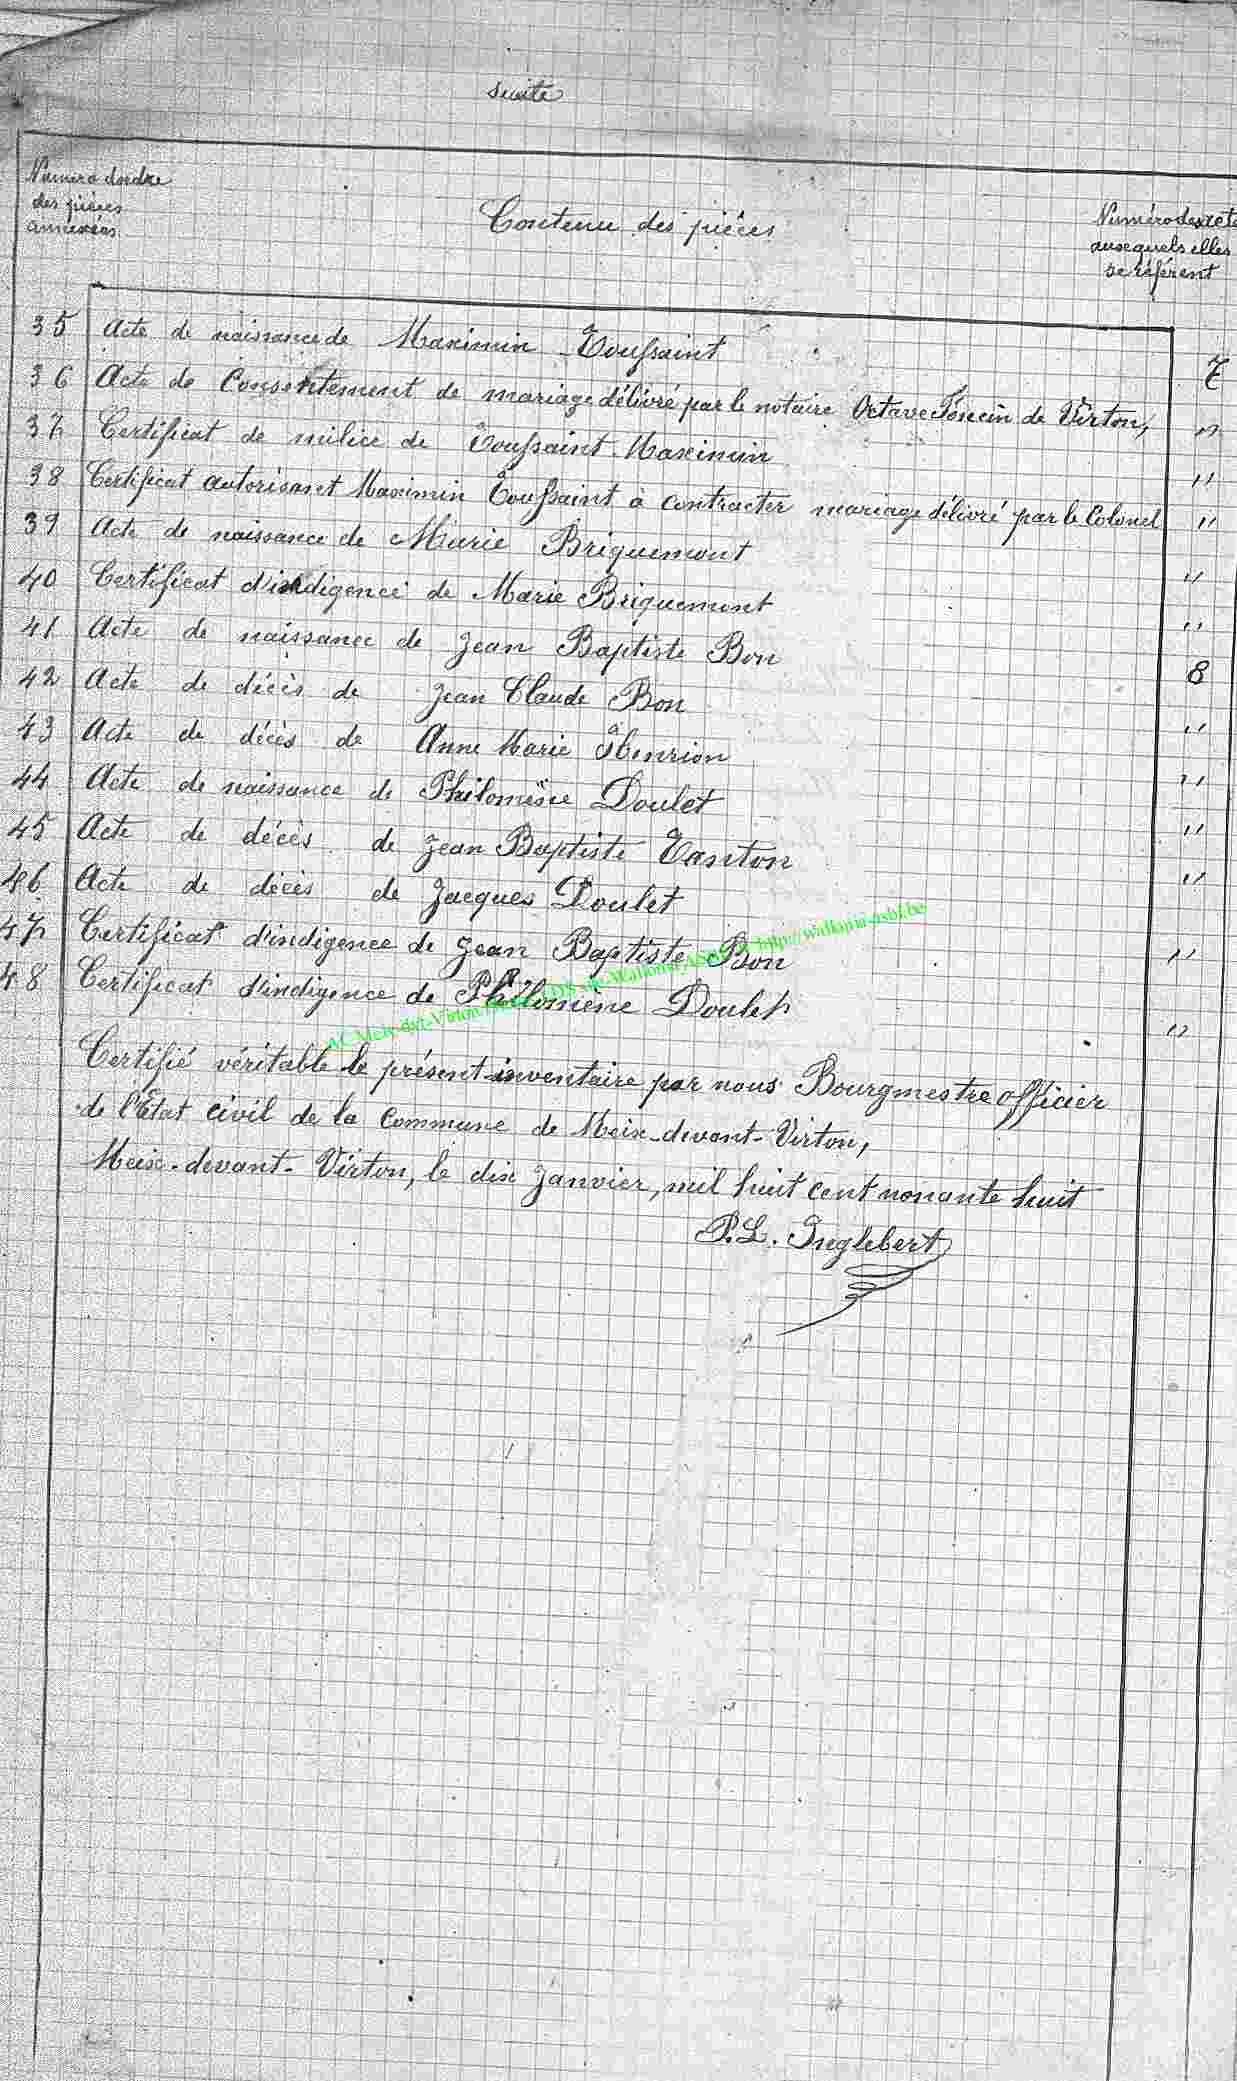 suite
Numéro d'ordre
des pièces
annexées
Contenu des pièces
Numéro des actes
auxquels elles
se référent
35 Acte de naissance de Maximin Toussaint 7
36 Acte de Consentement de mariage délivré par le notaire Octave Foncin de Virton, "
37 Certificat de milice de Toussaint Maximin "
38 Certificat autorisant Maximin Toussaint à contracter mariage délivré par le Colonel "
39 Acte de naissance de Marie Briquemont "
40 Certificat d'indigence de Marie Briquemont "
41 Acte de naissance de Jean Baptiste Bon 8
42 Acte de décès de Jean Claude Bon "
43 Acte de décès de Anne Marie Henrion "
44 Acte de naissance de Philomène Doulet "
45 Acte de décès de Jean Baptiste Tanton "
46 Acte de décès de Jacques Doulet
47 Certificat d'indigence de Jean Baptiste Bon "
48 Certificat d'indigence de Philomène Doulet "
Certifié véritable le présent inventaire par nous Bourgmestre officier
de l'Etat civil de la Commune de Meix-devant-Virton,
Meix-devant-Virton, le dix Janvier, mil huit cent nonante huit
P.L. Inglebert